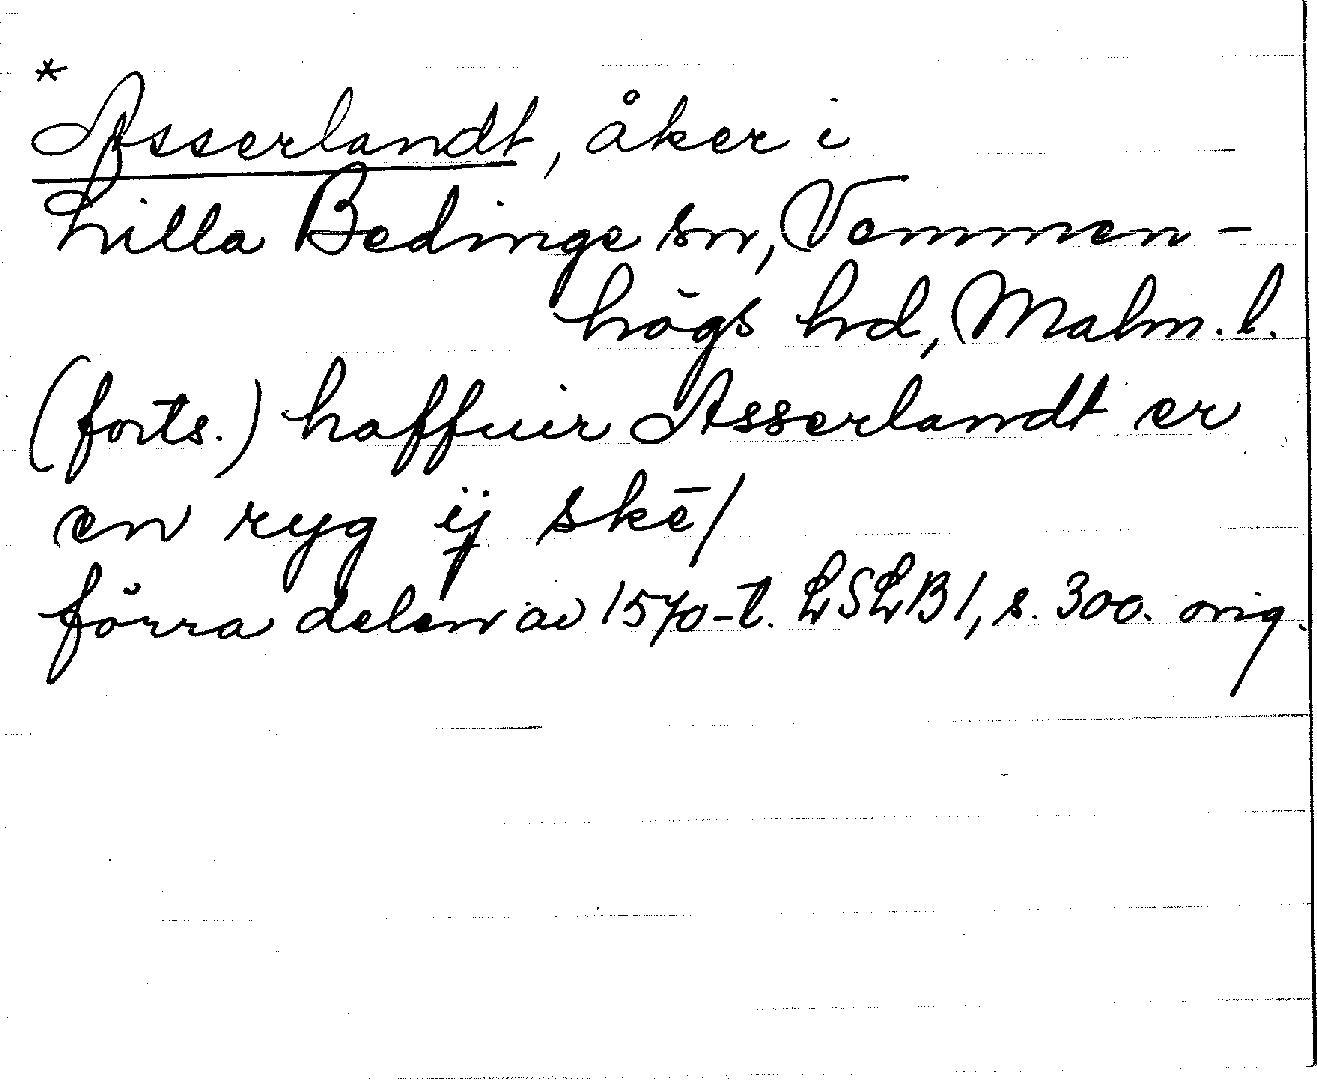 *
Asserlandt, åker i
Lilla Bedinge sn, Vemmen-
högs hd, Malm. l.
(forts.) haffuir Asserlandt er
en ryg ij skē/
förra delen av 1570-t. LSLB 1, s. 300. orig.